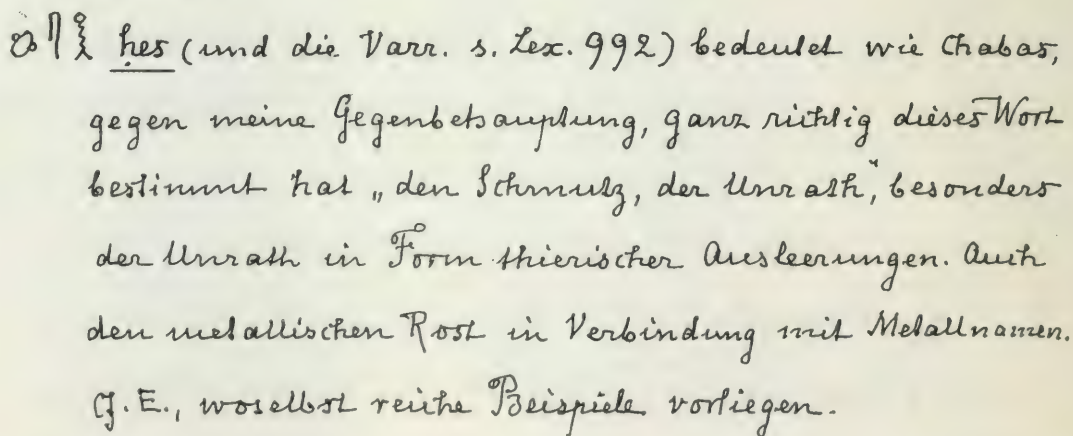 ḥes (und die Varr. s. Lex. 992) bedeutet wie Chabas,
gegen meine Gegenbehauptung, ganz richtig dieses Wort
bestimmt hat „den Schmutz, der Unrath", besonders
der Unrath in Form thierischer Ausleerungen. Auch
den metallischen Rost in Verbindung mit Metallnamen.
Cf. E., woselbst reiche Beispiele vorliegen.